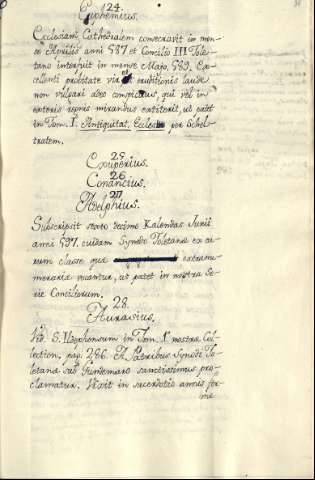 24.
Euphemius.
Ecclesiam Cathedralem consecravit in men-
se Aprilis anni 587 et Concilio III Tole-
tano interfuit in mense Majo 589. Ex-
cellenti probitate vir et eruditionis laude
non vulgari adeo conspicuus, qui vel in
exteris regnis mirandus extiterit, ut patet
in Tom. I. Antiquitat. Ecclesiæ per Schels-
tratem.
25
Exuperius.
26
Conancius.
27
Adelphius.
Subscripsit sexto decimo Kalendas Junii
anni 597. cuidam Synodo Toletanæ ex ea-
rum classe quæ extranu-
meraria vocantur, ut patet in nostra Se-
rie Conciliorum.
28.
Aurasius.
Vid. S. Ildephonsum in Tom. I nostræ Col-
lection, pag. 286. A Patribus Synodi To-
letanæ sub Gundemaro sanctissimus pro-
clamatur. Vixit in sacerdotio annis fer-
me